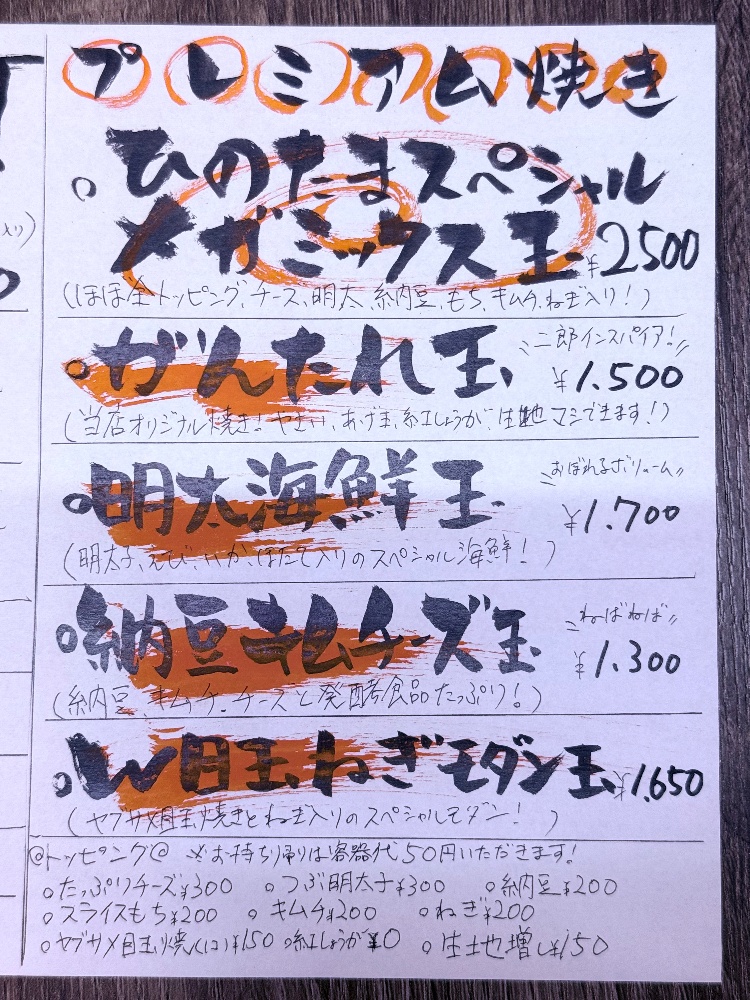 入り)
プレミアム焼き
○ひのたまスペシャル
メガミックス玉 ¥2500
(ほぼ全トッピング、チーズ、明太、納豆、もち、キムチ、ねぎ入り!)
○がんたれ玉 二郎インスパイア!
¥1.500
(当店オリジナル焼き!やさい、あげ玉、紅しょうが、生地マシできます!)
○明太海鮮玉 おぼれるボリューム
¥1.700
(明太子、えび、いか、ほたて入りのスペシャル海鮮!)
○納豆キムチーズ玉 ねばねば
¥1.300
(納豆、キムチ、チーズと発酵食品たっぷり!)
○W目玉ねぎモダン玉 ¥1.650
(ヤブサメ目玉焼きとねぎ入りのスペシャルモダン!)
@トッピング@ ※お持ち帰りは容器代50円いただきます!
○たっぷりチーズ¥300 ○つぶ明太子¥300 ○納豆¥200
○スライスもち¥200 ○キムチ¥200 ○ねぎ¥200
○ヤブサメ目玉焼(1コ)¥150 ○紅しょうが¥0 ○生地増し¥150